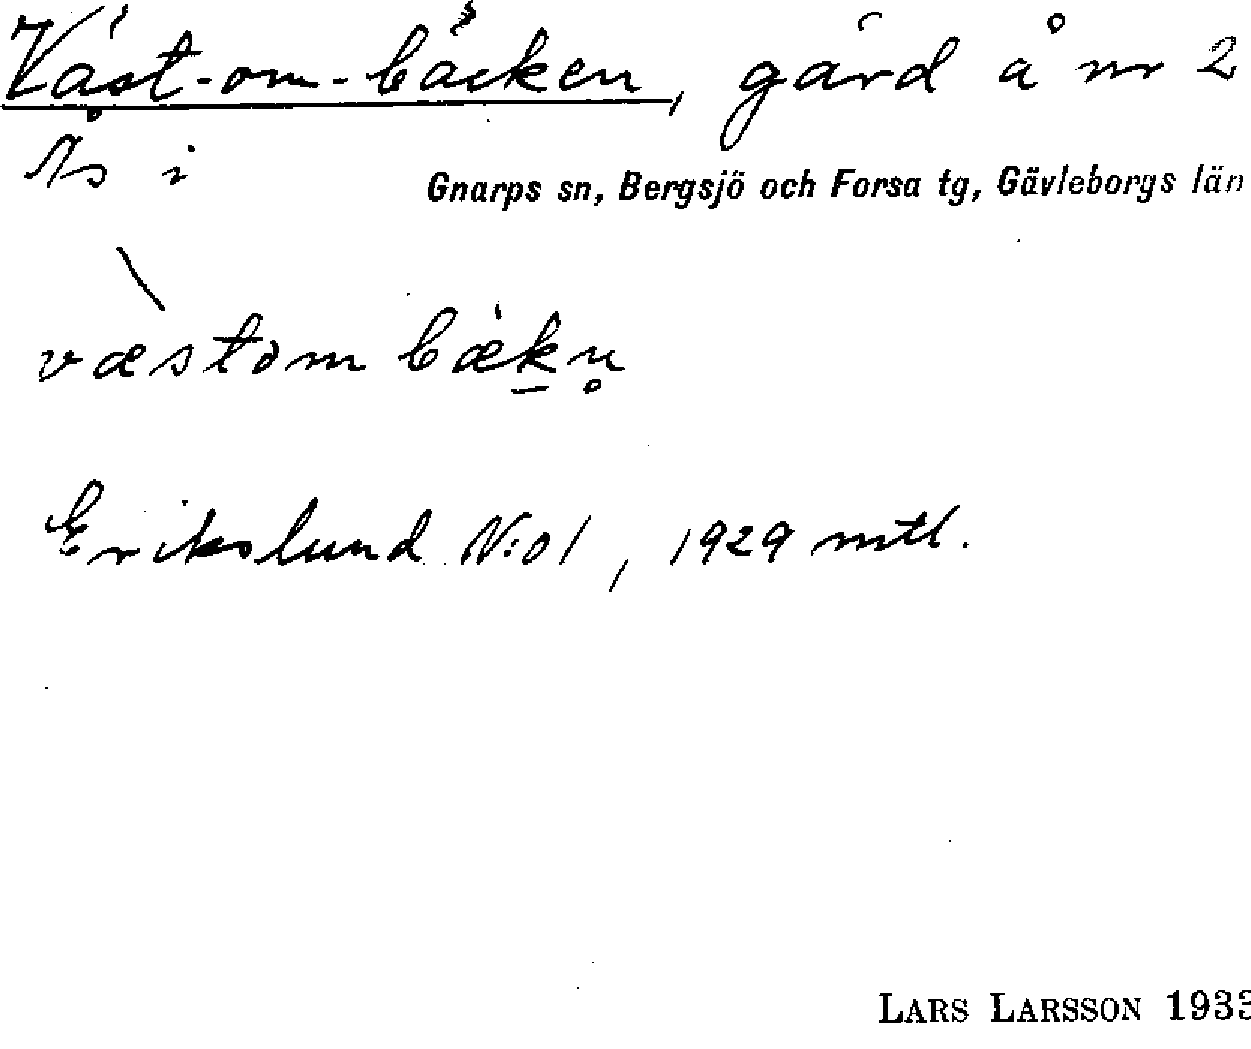 Väst-om-bäcken, gård å nr 2
Ås i
Gnarps sn, Bergsjö och Forsa tg, Gävleborgs län
væ̀stom bæ̀k̠n̥
Erikslund N:o 1, 1929 mtl.
LARS LARSSON 1933